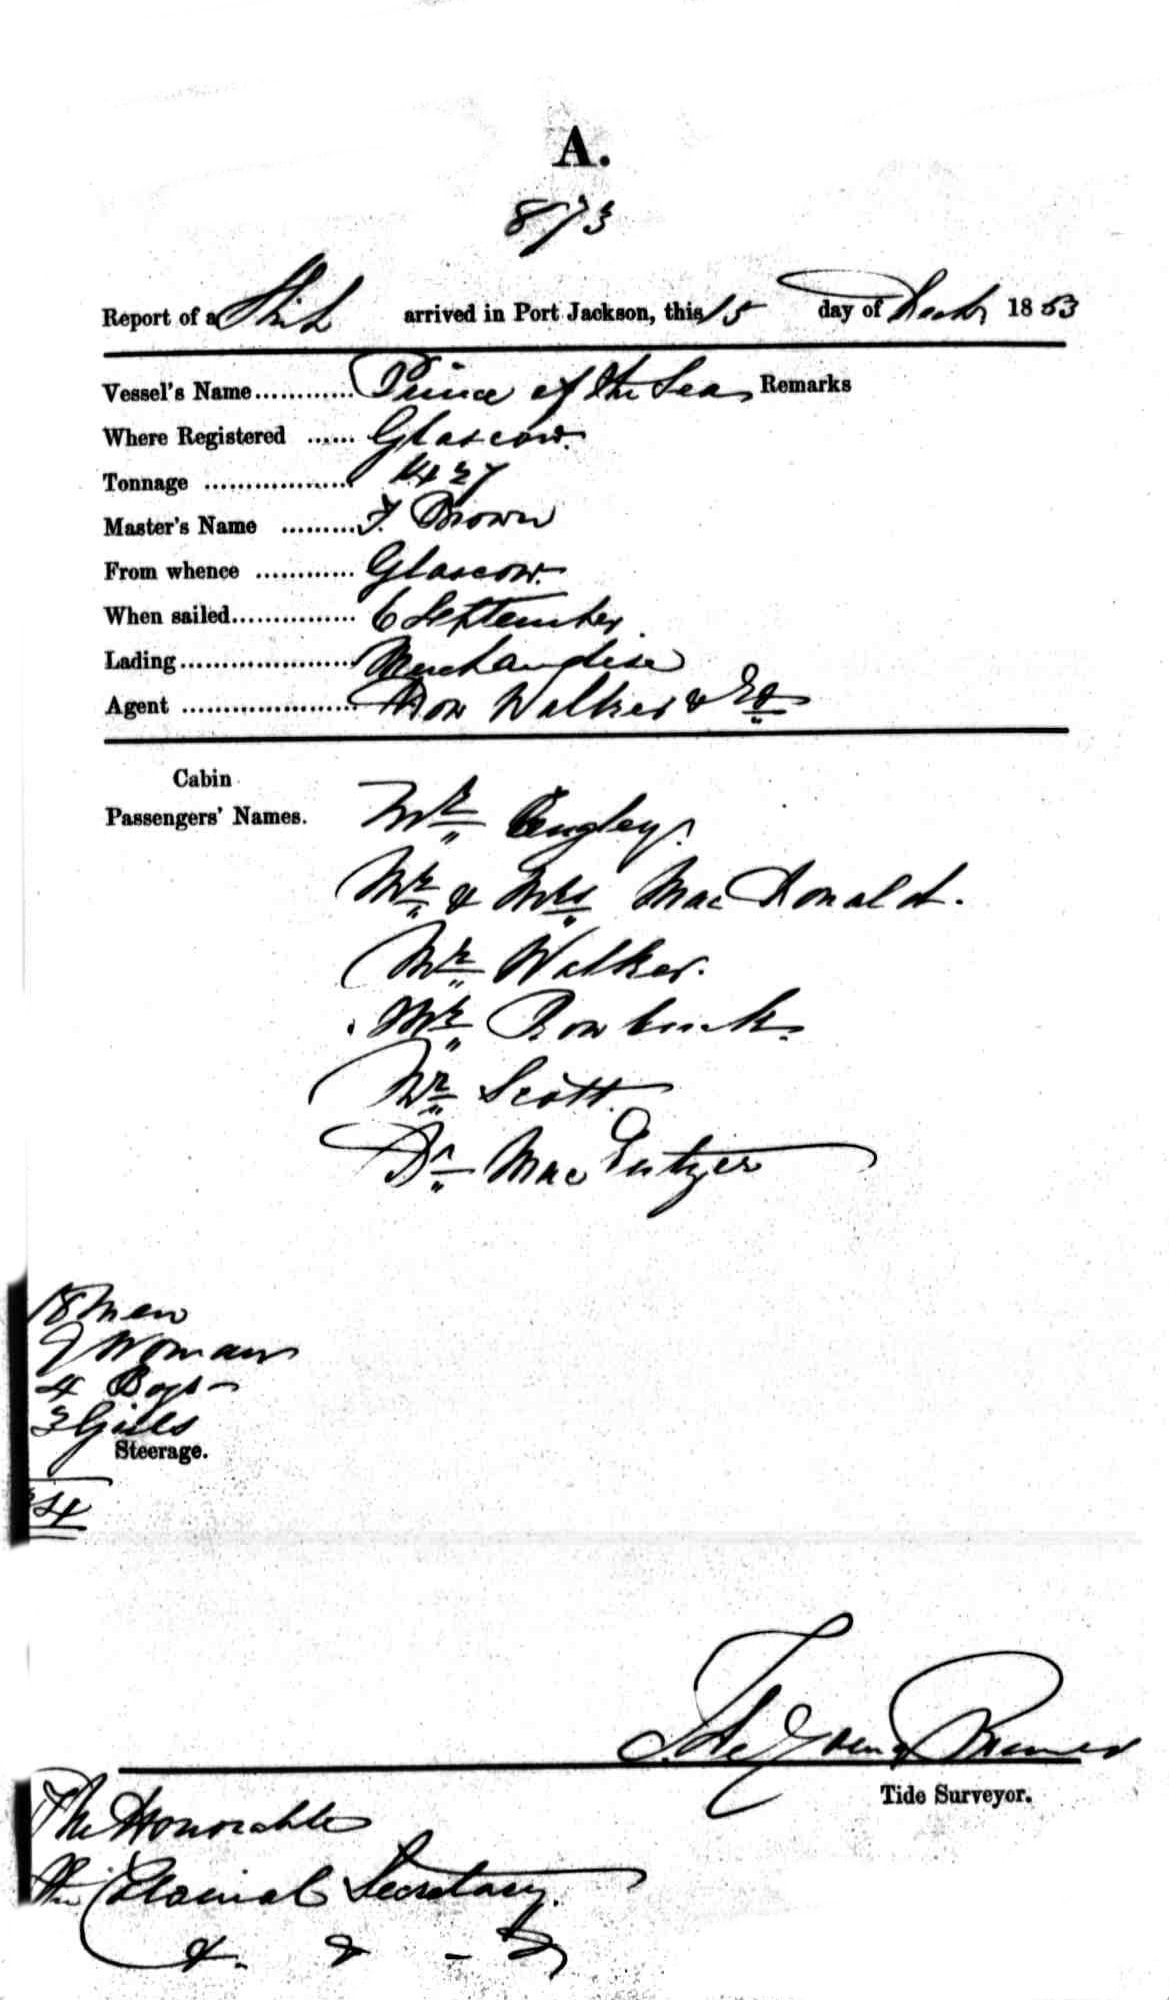 A.
873
Report of a Ship arrived in Port Jackson, this 15 day of Decbr 1853
Vessel's Name............ Prince of the Seas, Remarks
Where Registered ...... Glascow.
Tonnage ................. 1427
Master's Name ......... F. Brown
From whence ............ Glascow.
When sailed............... 6 September
Lading..................... Merchandise
Agent ..................... Thos Walker & Co
Cabin
Passengers' Names.
Mr
Mr & Mrs MacDonald.
Mr Walker.
Mr
Mr Scott.
Dr Mac
18 Men
9 Woman
4 Boys
3 Girls
Steerage.
34
Tide Surveyor.
The Honorable
The Colonial Secretary.
&. & - &